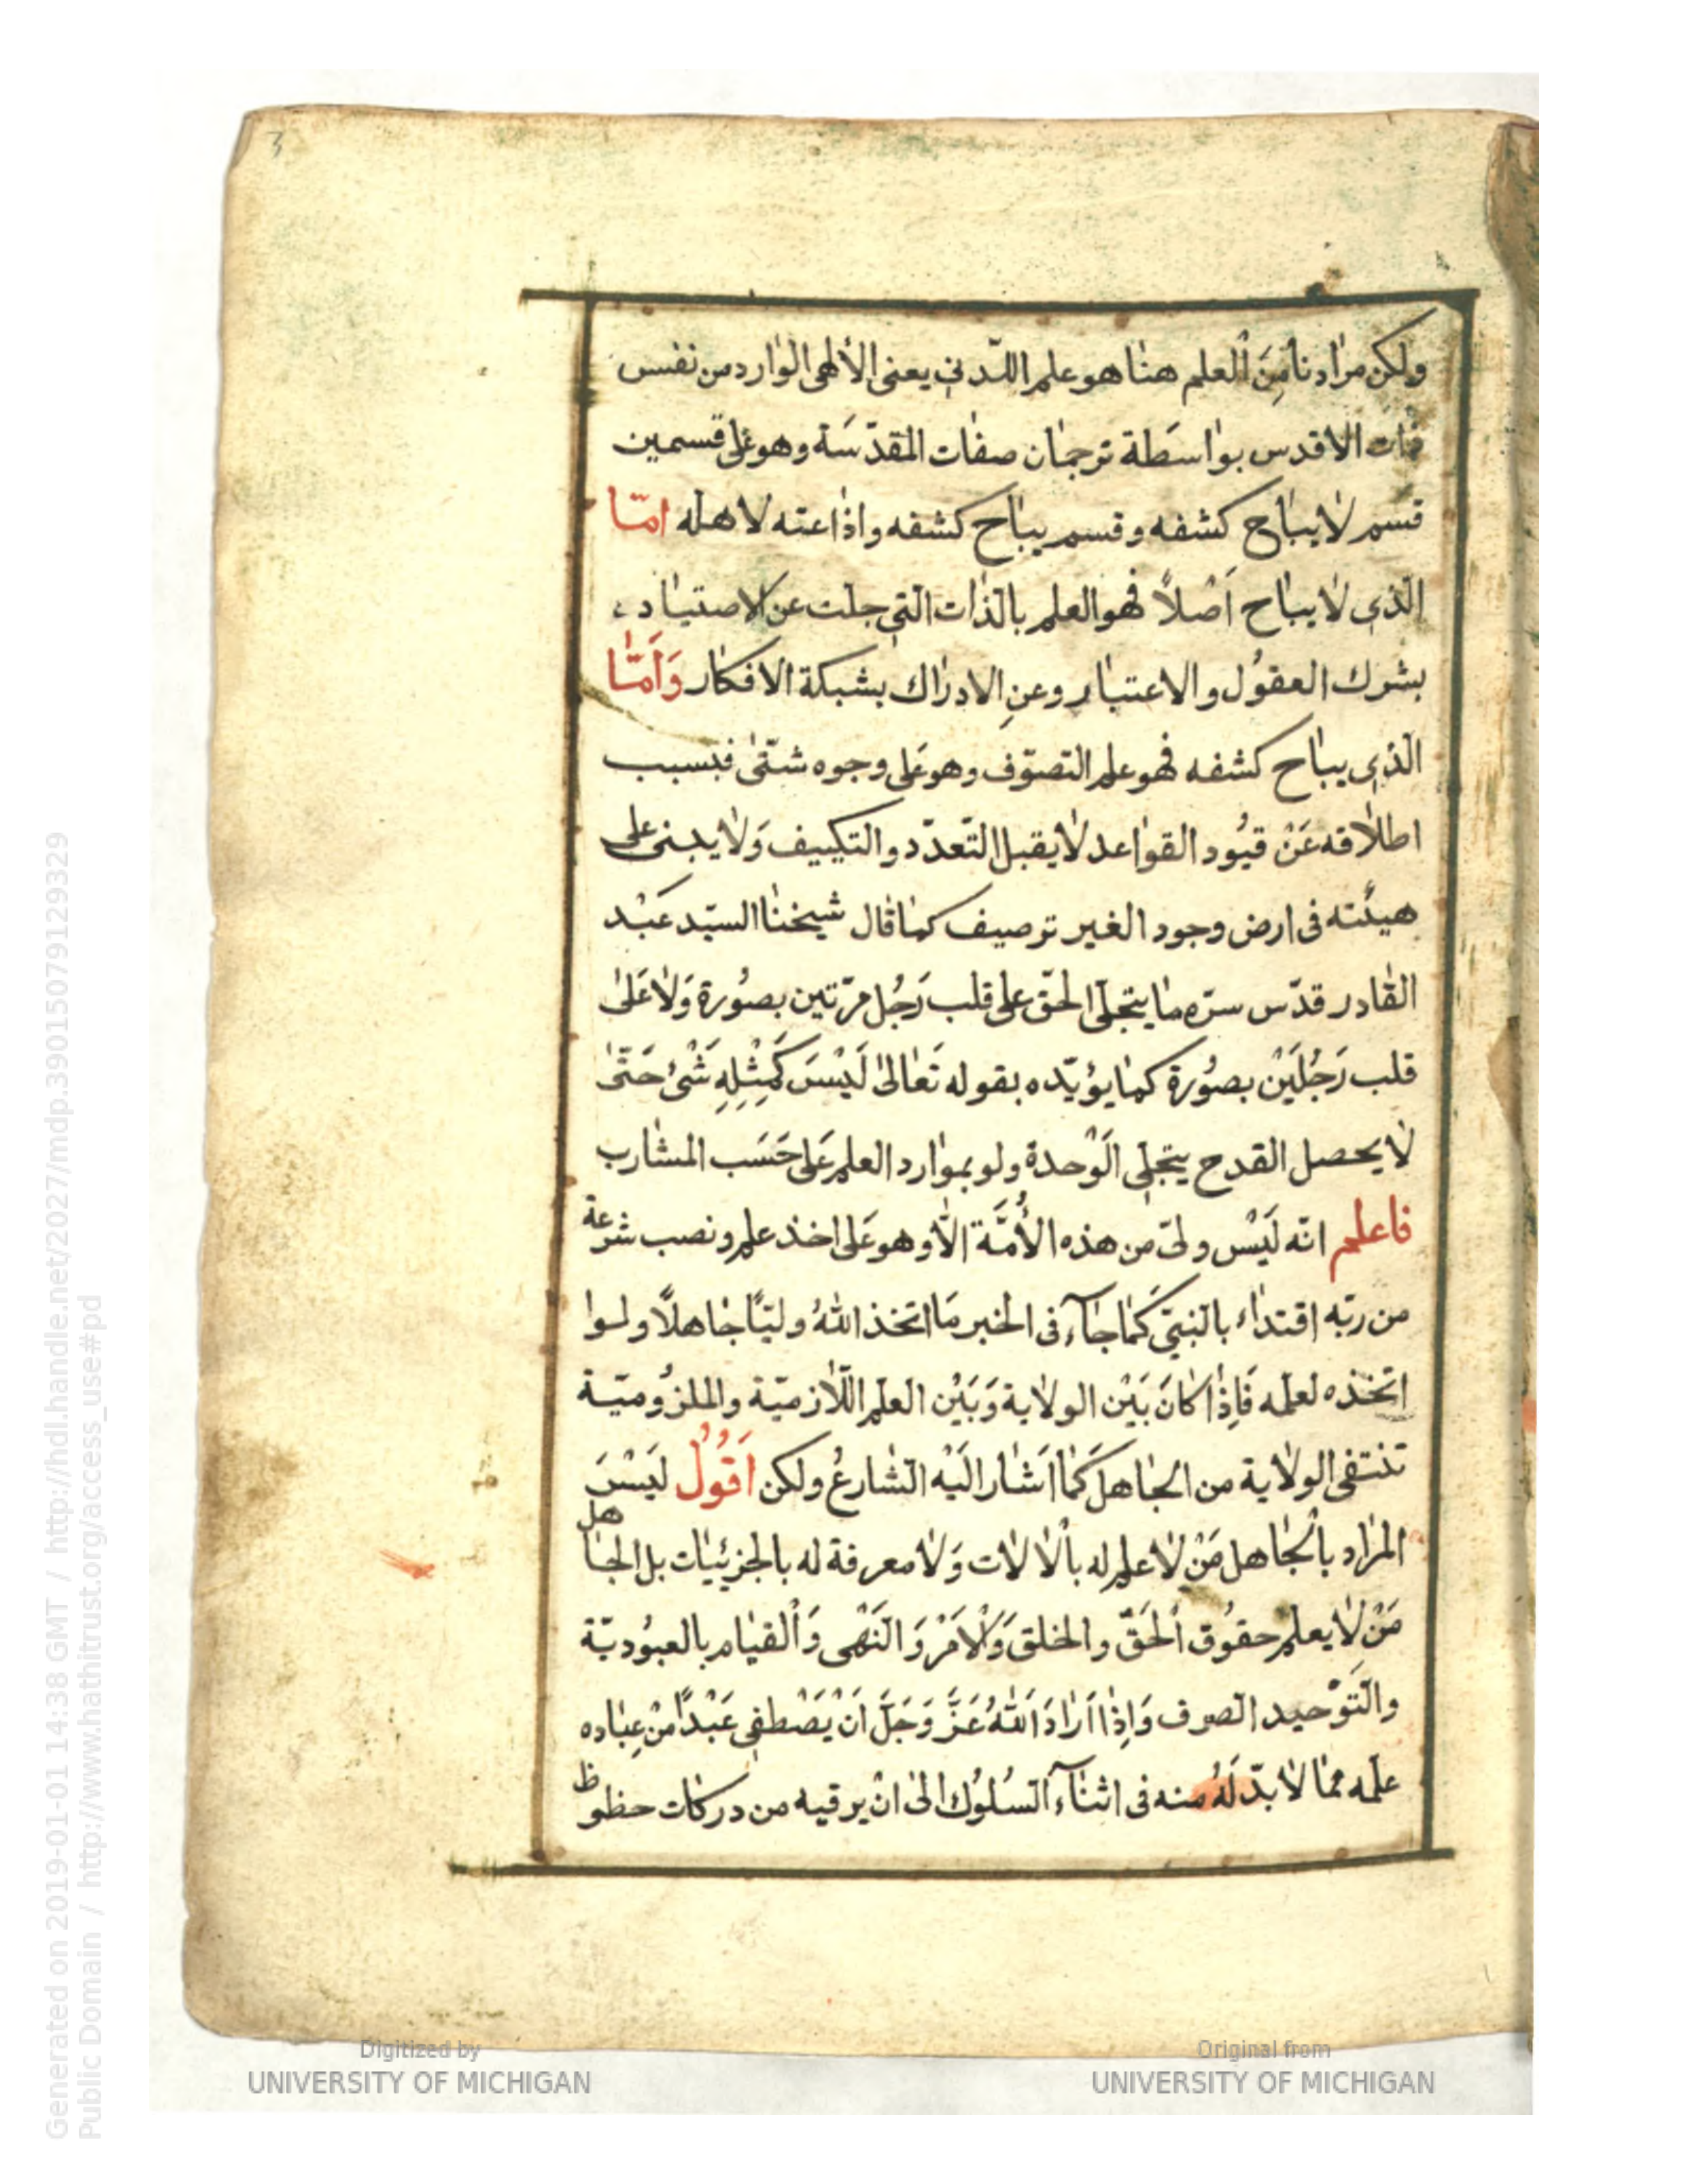 3
ولكن مرادنا مِنَ ٱلعلم هنا هو علم اللّدني يعنى الألهى الوارد من نفس
ذات الاقدس بواسَطة ترجمان صفات المقدّسَة وهو على قسمين
قسم لا يباح كشفه وقسم يباح كشفه واذاعته لاهله امّا
الّذى لا يباح اَصْلاً فهو العلم بالذات الّتى جلت عن الاصتياد
بشرك العقوُل والاعتبار وعنِ الادراك بشبكة الافكار وَاَمّا
الّذى يباح كشفه فهو علم التصوّف وهو عَلى وجوه شتّىٰ فبسبب
اطلاقه عَنْ قيُود القواعد لا يقبل التّعدّد والتكييف وَلا يبنى على
هيئته فى ارض وجود الغير توصيف كما قال شيخنا السيّد عَبْد
القادر قدّس سرّه ما يتجلّى الحقّ على قلب رَجُل مرّتين بصوُرة وَلا عَلىٰ
قلب رَجُلَيْن بصوُرة كما يؤيّده بقوله تَعَالىٰ لَيْسَ كَمِثْلِهِ شَىْءٌ حَتّىٰ
لا يحصل القدح يتجلى الَوْحدة ولو بموارد العلم عَلى حَسَب المشارب
فاعلم انّه لَيْس ولىّ من هذه الأُمَّة الّا وهو عَلى اخذ علم ونصب شرعة
من ربّه اقتداء بالنبىّ كَما جآء فى الخبر مَا اتخذ اللهُ وليّاً جاهلاً ولوا
اتخذه لعلمه فَاِذا كانَ بَيْن الولاية وَبَيْن العلم اللّازميّة والملزُوميّة
تنتفى الولاية من الجاهل كَمَا اَشار الَيْه الشارعُ ولكن اَقُولُ لَيْسَ
المراد بالْجاهل مَنْ لا علم له بالْالات وَلا معرفة له بالجزئيّات بل الجاهل
مَنْ لا يعلم حقوُق اْلحَقّ والخلق وَالْاَمَرْ وَالنَهْى وَاْلقيام بالعبوُديّة
والتَوْحيد الصرف وَاِذا اَرَادَ اللّٰهُ عَزَّ وَجَلَّ اَنْ يَصْطفى عَبْدًا منْ عِباده
علمه مما لا بدّ لَهُ منه فى اثنآء السُلوُك الىٰ انْ يرقيه من دركات حظوظ
Digitized by
UNIVERSITY OF MICHIGAN
Original from
UNIVERSITY OF MICHIGAN
Generated on 2019-01-01 14:38 GMT / http://hdl.handle.net/2027/mdp.39015079129329
Public Domain / http://www.hathitrust.org/access_use#pd